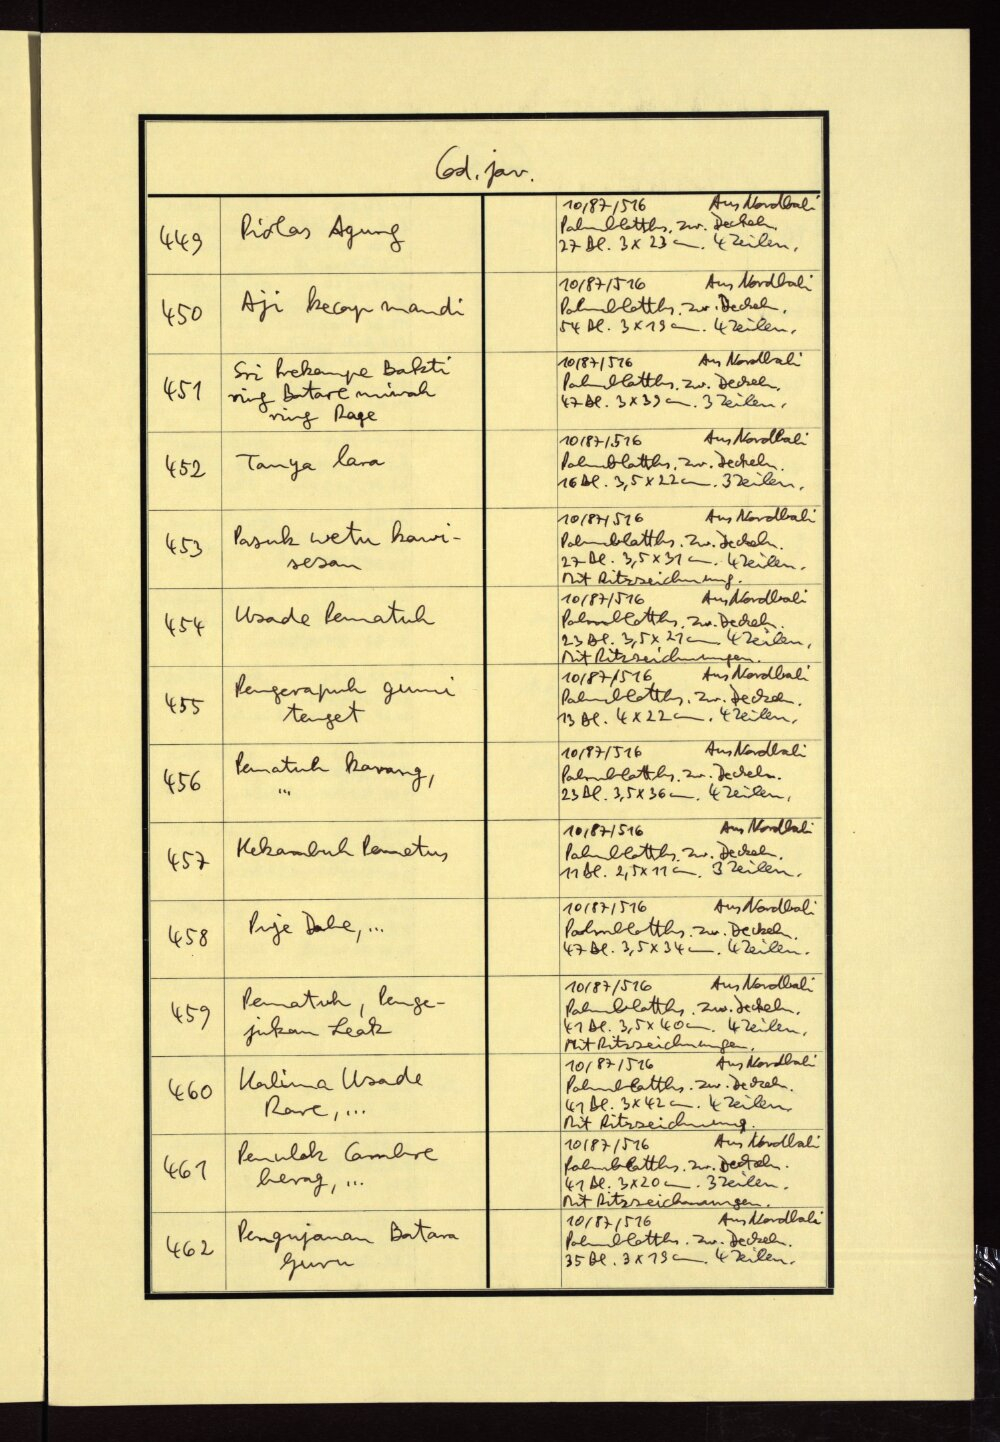 Cod. jav.
449
Piolas Agung
10/87/516 Aus Nordbali
Palmblatths. zw. Deckeln.
27 Bl. 3 x 23 cm. 4 Zeilen.
450
Aji kecap mandi
10/87/516 Aus Nordbali
Palmblatths. zw. Deckeln.
54 Bl. 3 x 19 cm. 4 Zeilen.
451
Sri Bakti
ring Batare miwah
ring Rage
10/87/516 Aus Nordbali
Palmblatths. zw. Deckeln.
47 Bl. 3 x 39 cm. 3 Zeilen.
452
Tanya lara
10/87/516 Aus Nordbali
Palmblatths. zw. Deckeln.
16 Bl. 3,5 x 22 cm. 3 Zeilen.
453
Pasuk wetu kawi-
sesan
10/87/516 Aus Nordbali
Palmblatths. zw. Deckeln.
27 Bl. 3,5 x 31 cm. 4 Zeilen.
Mit Ritzzeichnung.
454
Usade Pematuh
10/87/516 Aus Nordbali
Palmblatths. zw. Deckeln.
23 Bl. 3,5 x 21 cm. 4 Zeilen.
Mit Ritzzeichnungen.
455
Pengerapuh gumi
tenget
10/87/516 Aus Nordbali
Palmblatths. zw. Deckeln.
13 Bl. 4 x 22 cm. 4 Zeilen.
456
Pematuh karang,
...
10/87/516 Aus Nordbali
Palmblatths. zw. Deckeln.
23 Bl. 3,5 x 36 cm. 4 Zeilen.
457
Kekambuh Pemetus
10/87/516 Aus Nordbali
Palmblatths. zw. Deckeln.
11 Bl. 2,5 x 11 cm. 3 Zeilen.
458
Puje Dahe, ...
10/87/516 Aus Nordbali
Palmblatths. zw. Deckeln.
47 Bl. 3,5 x 34 cm. 4 Zeilen.
459
Pematuh, Penge-
jukan Leak
10/87/516 Aus Nordbali
Palmblatths. zw. Deckeln.
41 Bl. 3,5 x 40 cm. 4 Zeilen.
Mit Ritzzeichnungen.
460
Kalima Usade
Rare, ...
10/87/516 Aus Nordbali
Palmblatths. zw. Deckeln.
41 Bl. 3 x 42 cm. 4 Zeilen.
Mit Ritzzeichnung.
461
Penulak
berag, ...
10/87/516 Aus Nordbali
Palmblatths. zw. Deckeln.
41 Bl. 3 x 20 cm. 3 Zeilen.
Mit Ritzzeichnungen.
462
Pengujanan Batara
Guru
10/87/516 Aus Nordbali
Palmblatths. zw. Deckeln.
35 Bl. 3 x 19 cm. 4 Zeilen.